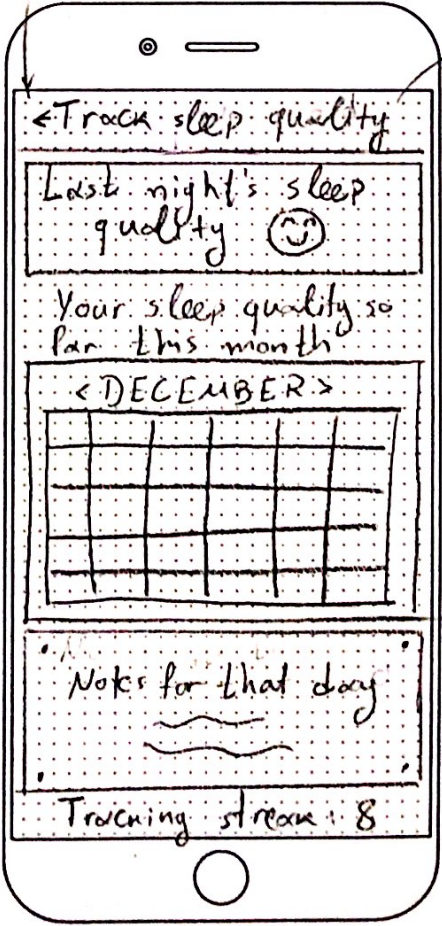 <Track sleep quality
Last night's sleep
quality
Your sleep quality so
far this month
<DECEMBER>
Notes for that day
Tracking streak: 8